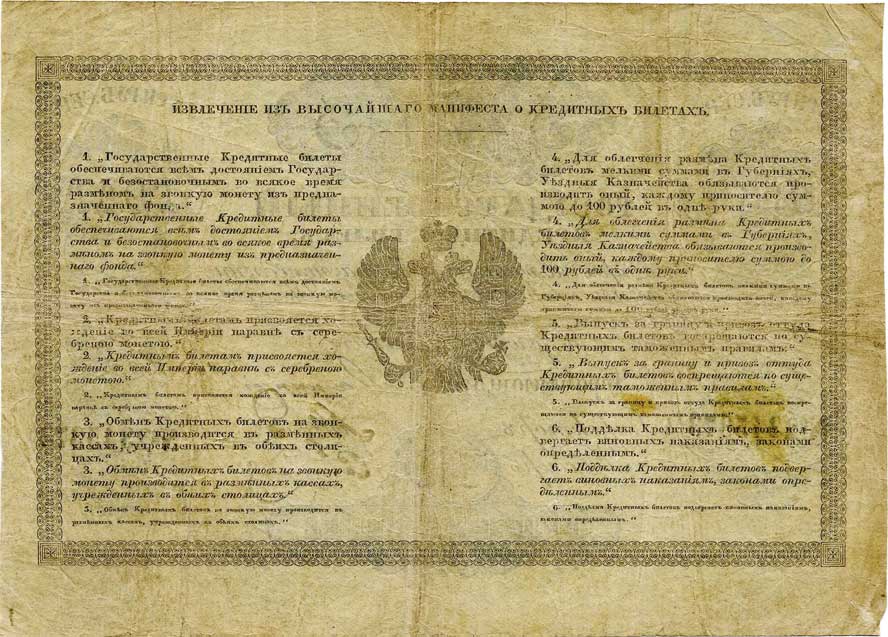 ИЗВЛЕЧЕНІЕ ИЗЪ ВЫСОЧАЙШАГО МАНИФЕСТА О КРЕДИТНЫХЪ БИЛЕТАХЪ.
1. „Государственные Кредитные билеты
обеспечиваются всѣмъ достояніемъ Государ-
ства и безостановочнымъ во всякое время
размѣномъ на звонкую монету изъ предна-
значеннаго фонда.“
1. „Государственные Кредитные билеты
обеспечиваются всѣмъ достояніемъ Государ-
ства и безостановочнымъ во всякое время раз-
мѣномъ на звонкую монету изъ предназначен-
наго фонда.“
1. „Государственные Кредитные билеты обеспечиваются всѣмъ достояніемъ
Государства и безостановочнымъ во всякое время размѣномъ на звонкую мо-
нету изъ предназначеннаго фонда.“
2. „Кредитнымъ билетамъ присвояется хо-
жденіе во всей Имперіи наравнѣ съ сере-
бреною монетою.“
2. „Кредитнымъ билетамъ присвояется хо-
жденіе во всей Имперіи наравнѣ съ серебреною
монетою.“
2. „Кредитнымъ билетамъ присвояется хожденіе во всей Имперіи
наравнѣ съ серебреною монетою.“
3. „Обмѣнъ Кредитныхъ билетовъ на звон-
кую монету производится въ размѣнныхъ
кассахъ, учрежденныхъ въ обѣихъ столи-
цахъ.“
3. „Обмѣнъ Кредитныхъ билетовъ на звонкую
монету производится въ размѣнныхъ кассахъ,
учрежденныхъ въ обѣихъ столицахъ.“
3. „Обмѣнъ Кредитныхъ билетовъ на звонкую монету производится въ
размѣнныхъ кассахъ, учрежденныхъ въ обѣихъ столицахъ.“
4. „Для облегченія размѣна Кредитныхъ
билетовъ мелкими суммами въ Губерніяхъ,
Уѣздныя Казначейства обязываются про-
изводить оный, каждому приносителю сум-
мою до 100 рублей въ однѣ руки.“
4. „Для облегченія размѣна Кредитныхъ
билетовъ мелкими суммами въ Губерніяхъ,
Уѣздныя Казначейства обязываются произво-
дить оный, каждому приносителю суммою до
100 рублей въ однѣ руки.“
4. „Для облегченія размѣна Кредитныхъ билетовъ, мелкими суммами въ
Губерніяхъ, Уѣздныя Казначейства обязываются производить оный, каждому
приносителю суммою до 100 рублей въ однѣ руки.“
5. „Выпускъ за границу и привозъ оттуда
Кредитныхъ билетовъ воспрещаются по
существующимъ таможеннымъ правиламъ.“
5. „Выпускъ за границу и привозъ оттуда
Кредитныхъ билетовъ воспрещаются по суще-
ствующимъ таможеннымъ правиламъ.“
5. „Выпускъ за границу и привозъ оттуда Кредитныхъ билетовъ воспре-
щаются по существующимъ таможеннымъ правиламъ.“
6. „Поддѣлка Кредитныхъ билетовъ под-
вергаетъ виновныхъ наказаніямъ, законами
опредѣленнымъ.“
6. „Поддѣлка Кредитныхъ билетовъ подвер-
гаетъ виновныхъ наказаніямъ, законами опре-
дѣленнымъ.“
6. „Поддѣлка Кредитныхъ билетовъ подвергаетъ виновныхъ наказаніямъ,
законами опредѣленнымъ.“